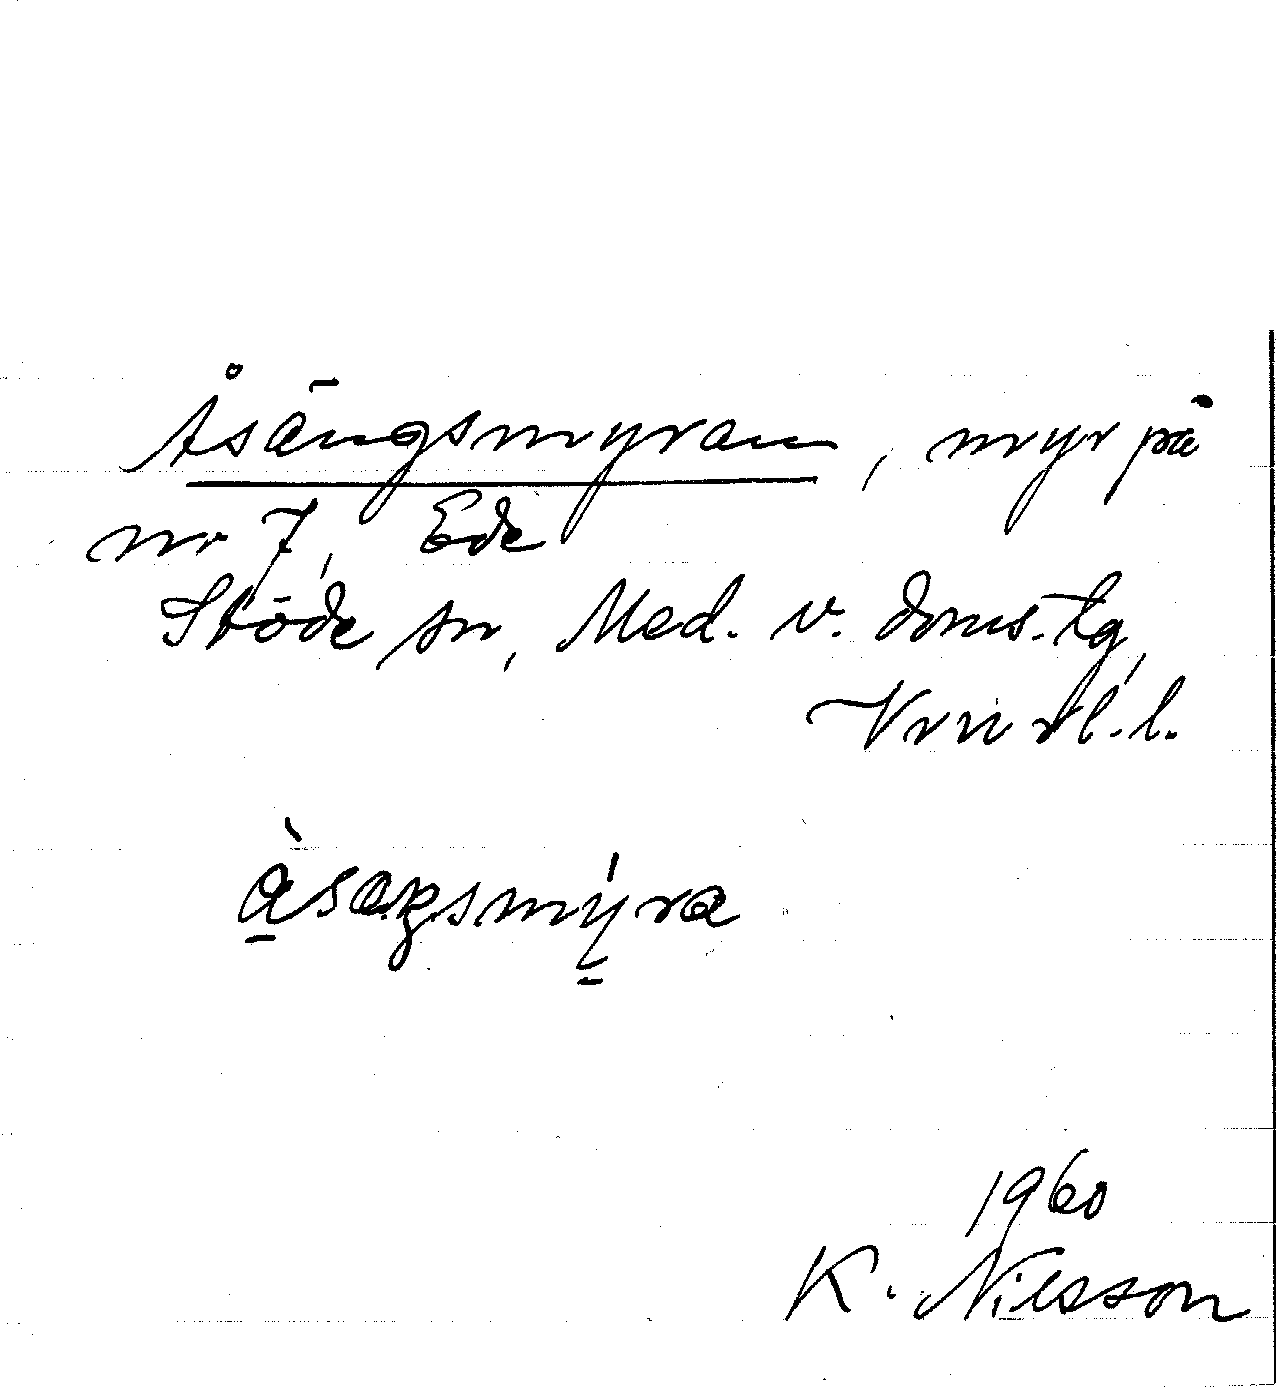 Åsängsmyran, myr på
nr 7, Ede
Stöde sn, Med. v. doms.tg,
Vnrl.l.
1960
K. Nilsson